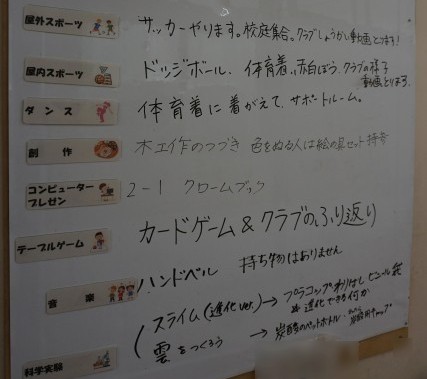 屋外スポーツ サッカーやります。校庭集合。クラブしょうかい動画とります!
屋内スポーツ ドッジボール、体育着、赤白ぼう、クラブの様子
動画とります。
ダンス 体育着に着がえて、サポートルーム。
創作 木工作のつづき 色をぬる人は絵の具セット持参
コンピューター
プレゼン 2-1 クロームブック
テーブルゲーム カードゲーム&クラブのふり返り
音楽 ハンドベル 持ち物はありません
スライム(進化ver.)→ プラコップ わりばし ビニール袋
進化できる何か
科学実験 雲をつくろう → 炭酸のペットボトル 炭酸用キャップ